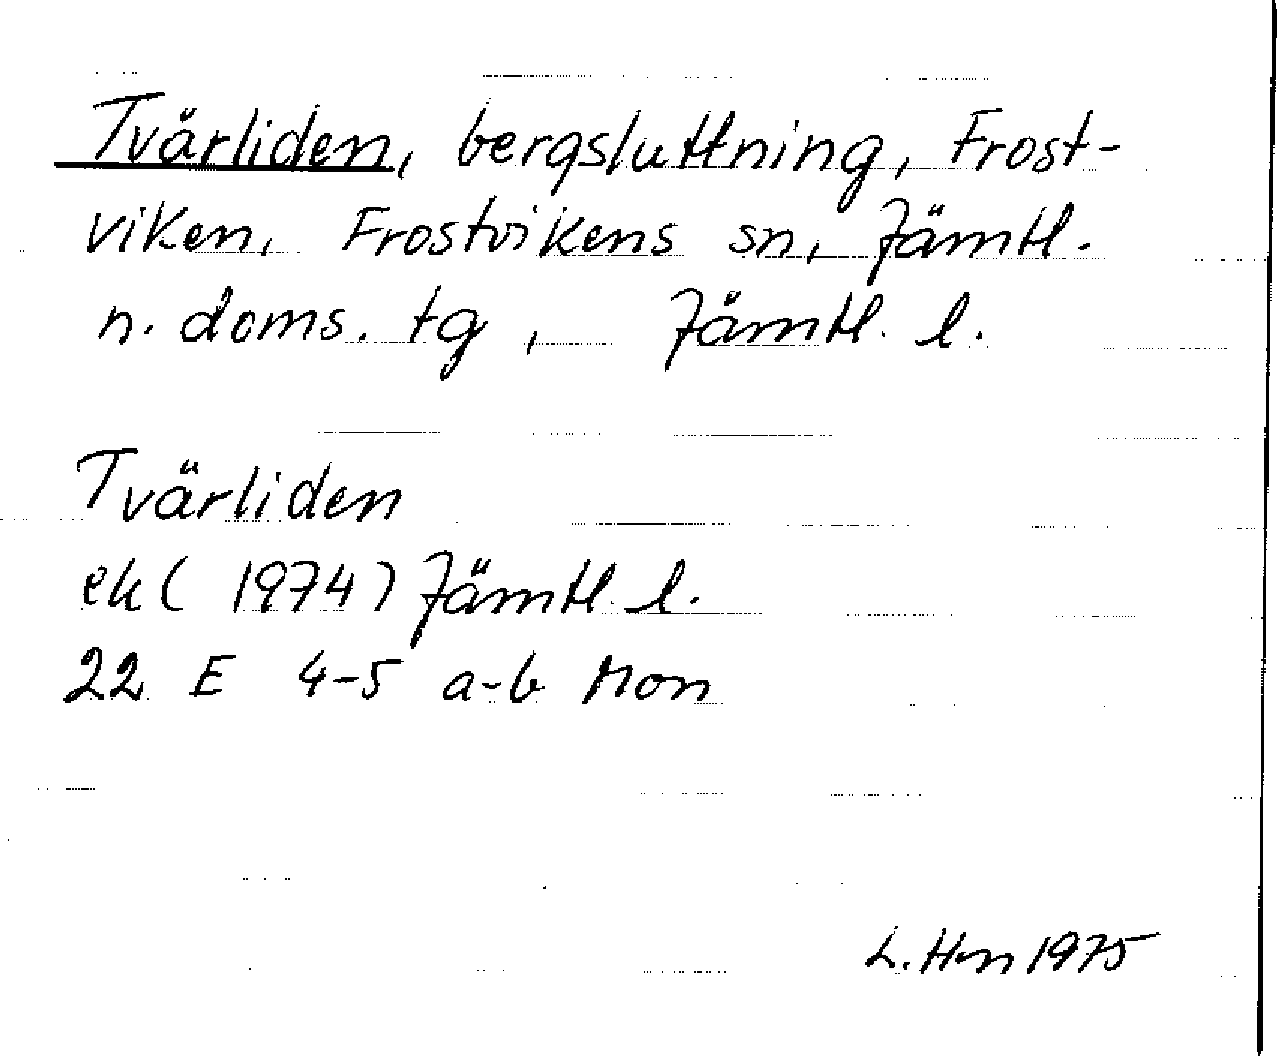 Tvärliden, bergsluttning, Frost-
viken, Frostvikens sn, Jämtl.
n. doms. tg, Jämtl. l.
Tvärliden
ek (1974) Jämtl. l.
22 E 4-5 a-b Mon
L. Hn 1975